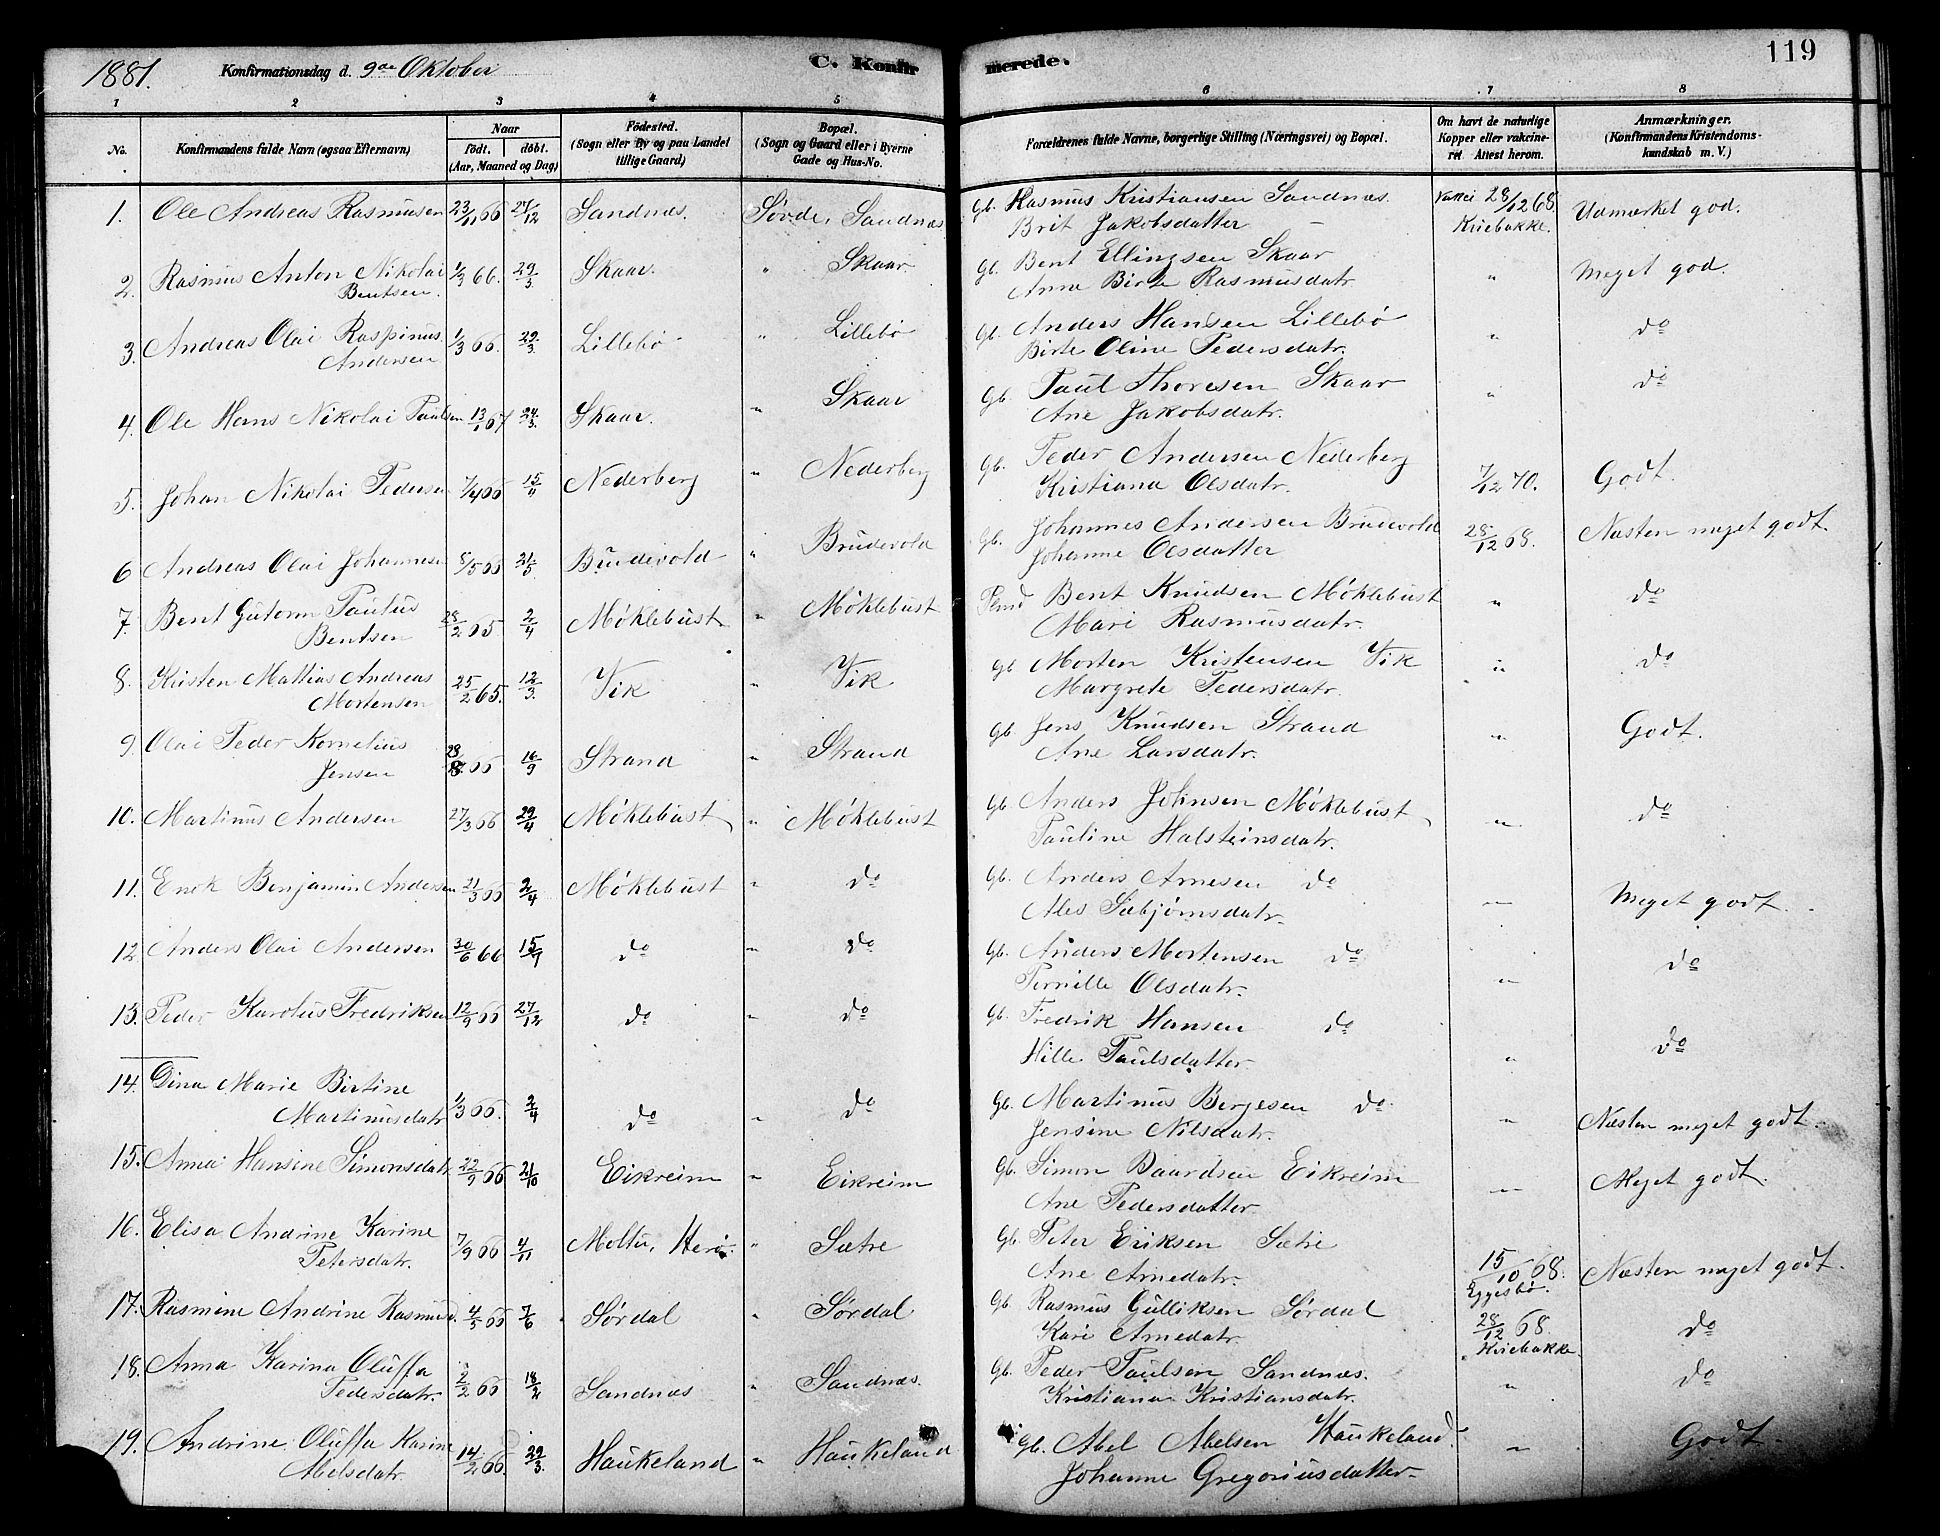 1881. Konfirmationsdag d. 9de Oktober C. Konfir merede. 119
1 2 3 4 5 6 7 8
No. Konfirmandens fulde Navn (ogsaa Efternavn) Naar Födt. döbt. (Aar, Maaned og Dag) Födested. (Sogn eller By og paa Landet tillige Gaard) Bopæl. (Sogn og Gaard eller i Byerne Gade og Hus-No. Forældrenes fulde Navne, borgerlige Stilling (Næringsvei) og Bopæl. Om havt de naturlige Kopper eller vakcineret Attest herom. Anmærkninger. (Konfirmandens Kristendomskundskab m. V.)
1. Ole Andreas Rasmusen 23/11 66 27/12 Sandnæs. Sövde, Sandnæs Gb. Rasmus Kristiansen Sandnæs. 28/12 68. Udmærket god.
Brit Jakobsdatter — Kriebakke.
2. Rasmus Anton Nikolai 1/3 66. 29/3 Skaar. " Skaar Gb. Bent Ellingsen Skaar " Meget god.
Bentsen. Anne Birte Rasmusdatr
3. Andreas Olai Raspinus 1/3 66. 29/3. Lillebø " Lillebø Gb. Anders Hansen Lillebø " do
Andersen Birte Oline Pedersdatr.
4. Ole Hans Nikolai Paulsen 13/1 67 24/3. Skaar. " Skaar Gb. Paul Thoresen Skaar " do
Ane Jakobsdatr.
5. Johan Nikolai Pedersen 7/4 66 Nederberg " Nederberg Gb. Peder Andersen Nederberg 7/12 70. Godt.
Kristiana Olsdatr.
6 Andreas Olai Johannesen 8/5 66 21/5. Brudevold " Brudevold Gb. Johannes Andersen Brudevold 28/12 68. Næsten meget godt.
Johanne Olsdatter
7. Bent Gutorm Paulus 28/2 65 2/4 Møklebust " Møklebust Bent Knudsen Møklebust " do
Bentsen Mari Rasmusdatr.
8. Kristen Mattias Andreas 25/2 65. 12/3. Vik " Vik Gb Morten Kristensen Vik " do
Mortensen Margrete Pedersdatr.
9. Olai Peder Kornelius 28/8 66 16/9 Strand " Strand Gb Jens Knudsen Strand " Godt.
Jensen Ane Larsdatr.
10. Martinus Andersen 27/3 66 29/4 Møklebust " Møklebust Gb. Anders Johnsen Møklebust " do
Pauline Halsteinsdatr.
11. Enok Benjamin Andersen 21/3 66 2/4 Møklebust " do Gb. Anders Arnesen do " Meget godt.
Ales Sæbjørnsdatr.
12 Anders Olai Andersen 30/6 66 15/7 do " do Gb. Anders Mortensen do " do
Pernille Olsdatr.
13. Peder Karolus Fredriksen 12/9 66 27/12 do " do Gb. Fredrik Hansen do " do
Hille Paulsdatter
14. Dina Marie Birtine 1/3 66. 2/4 do " do Gb. Martinus Berjesen do " Næsten meget godt.
Martinusdatr Jensine Nilsdatr.
15. Anna Hansine Simonsdatr 22/9 66 21/10 Eikreim " Eikreim Gb. Simon Baardsen Eikreim " Meget godt.
Ane Pedersdatter
16. Elisa Andrine Karine 7/9 66 4/11 Moltu, Herø. " Sætre Gb. Peter Eriksen Sætre 15/10 68. Næsten meget godt.
Petersdatr. Ane Arnedatr. Eggesbø.
17. Rasmine Andrine Rasmusd. 4/5 66 7/6 Sørdal " Sørdal Gb. Rasmus Gulliksen Sørdal 28/12 68 do
Kari Arnedatr. Kriebakke.
18. Anna Karina Oluffa 2/2 66 18/2 Sandnæs " Sandnæs. Gb. Peder Paulsen Sandnæs. " do
Pedersdatr. Kristiana Kristiansdatr.
19. Andrine Oluffa Karine 14/2 66. 29/3. Haukeland " Haukeland Gb. Abel Abelsen Haukeland. " Godt
Abelsdatr. Johanne Gregoriusdatter